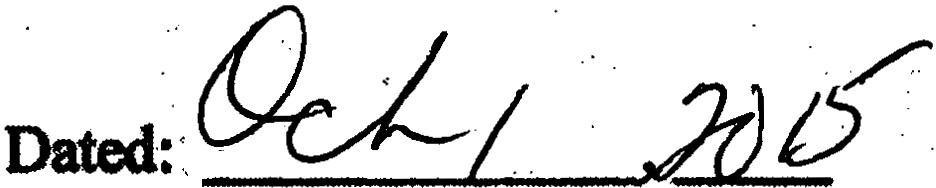 Dated: Oct 1, 2015